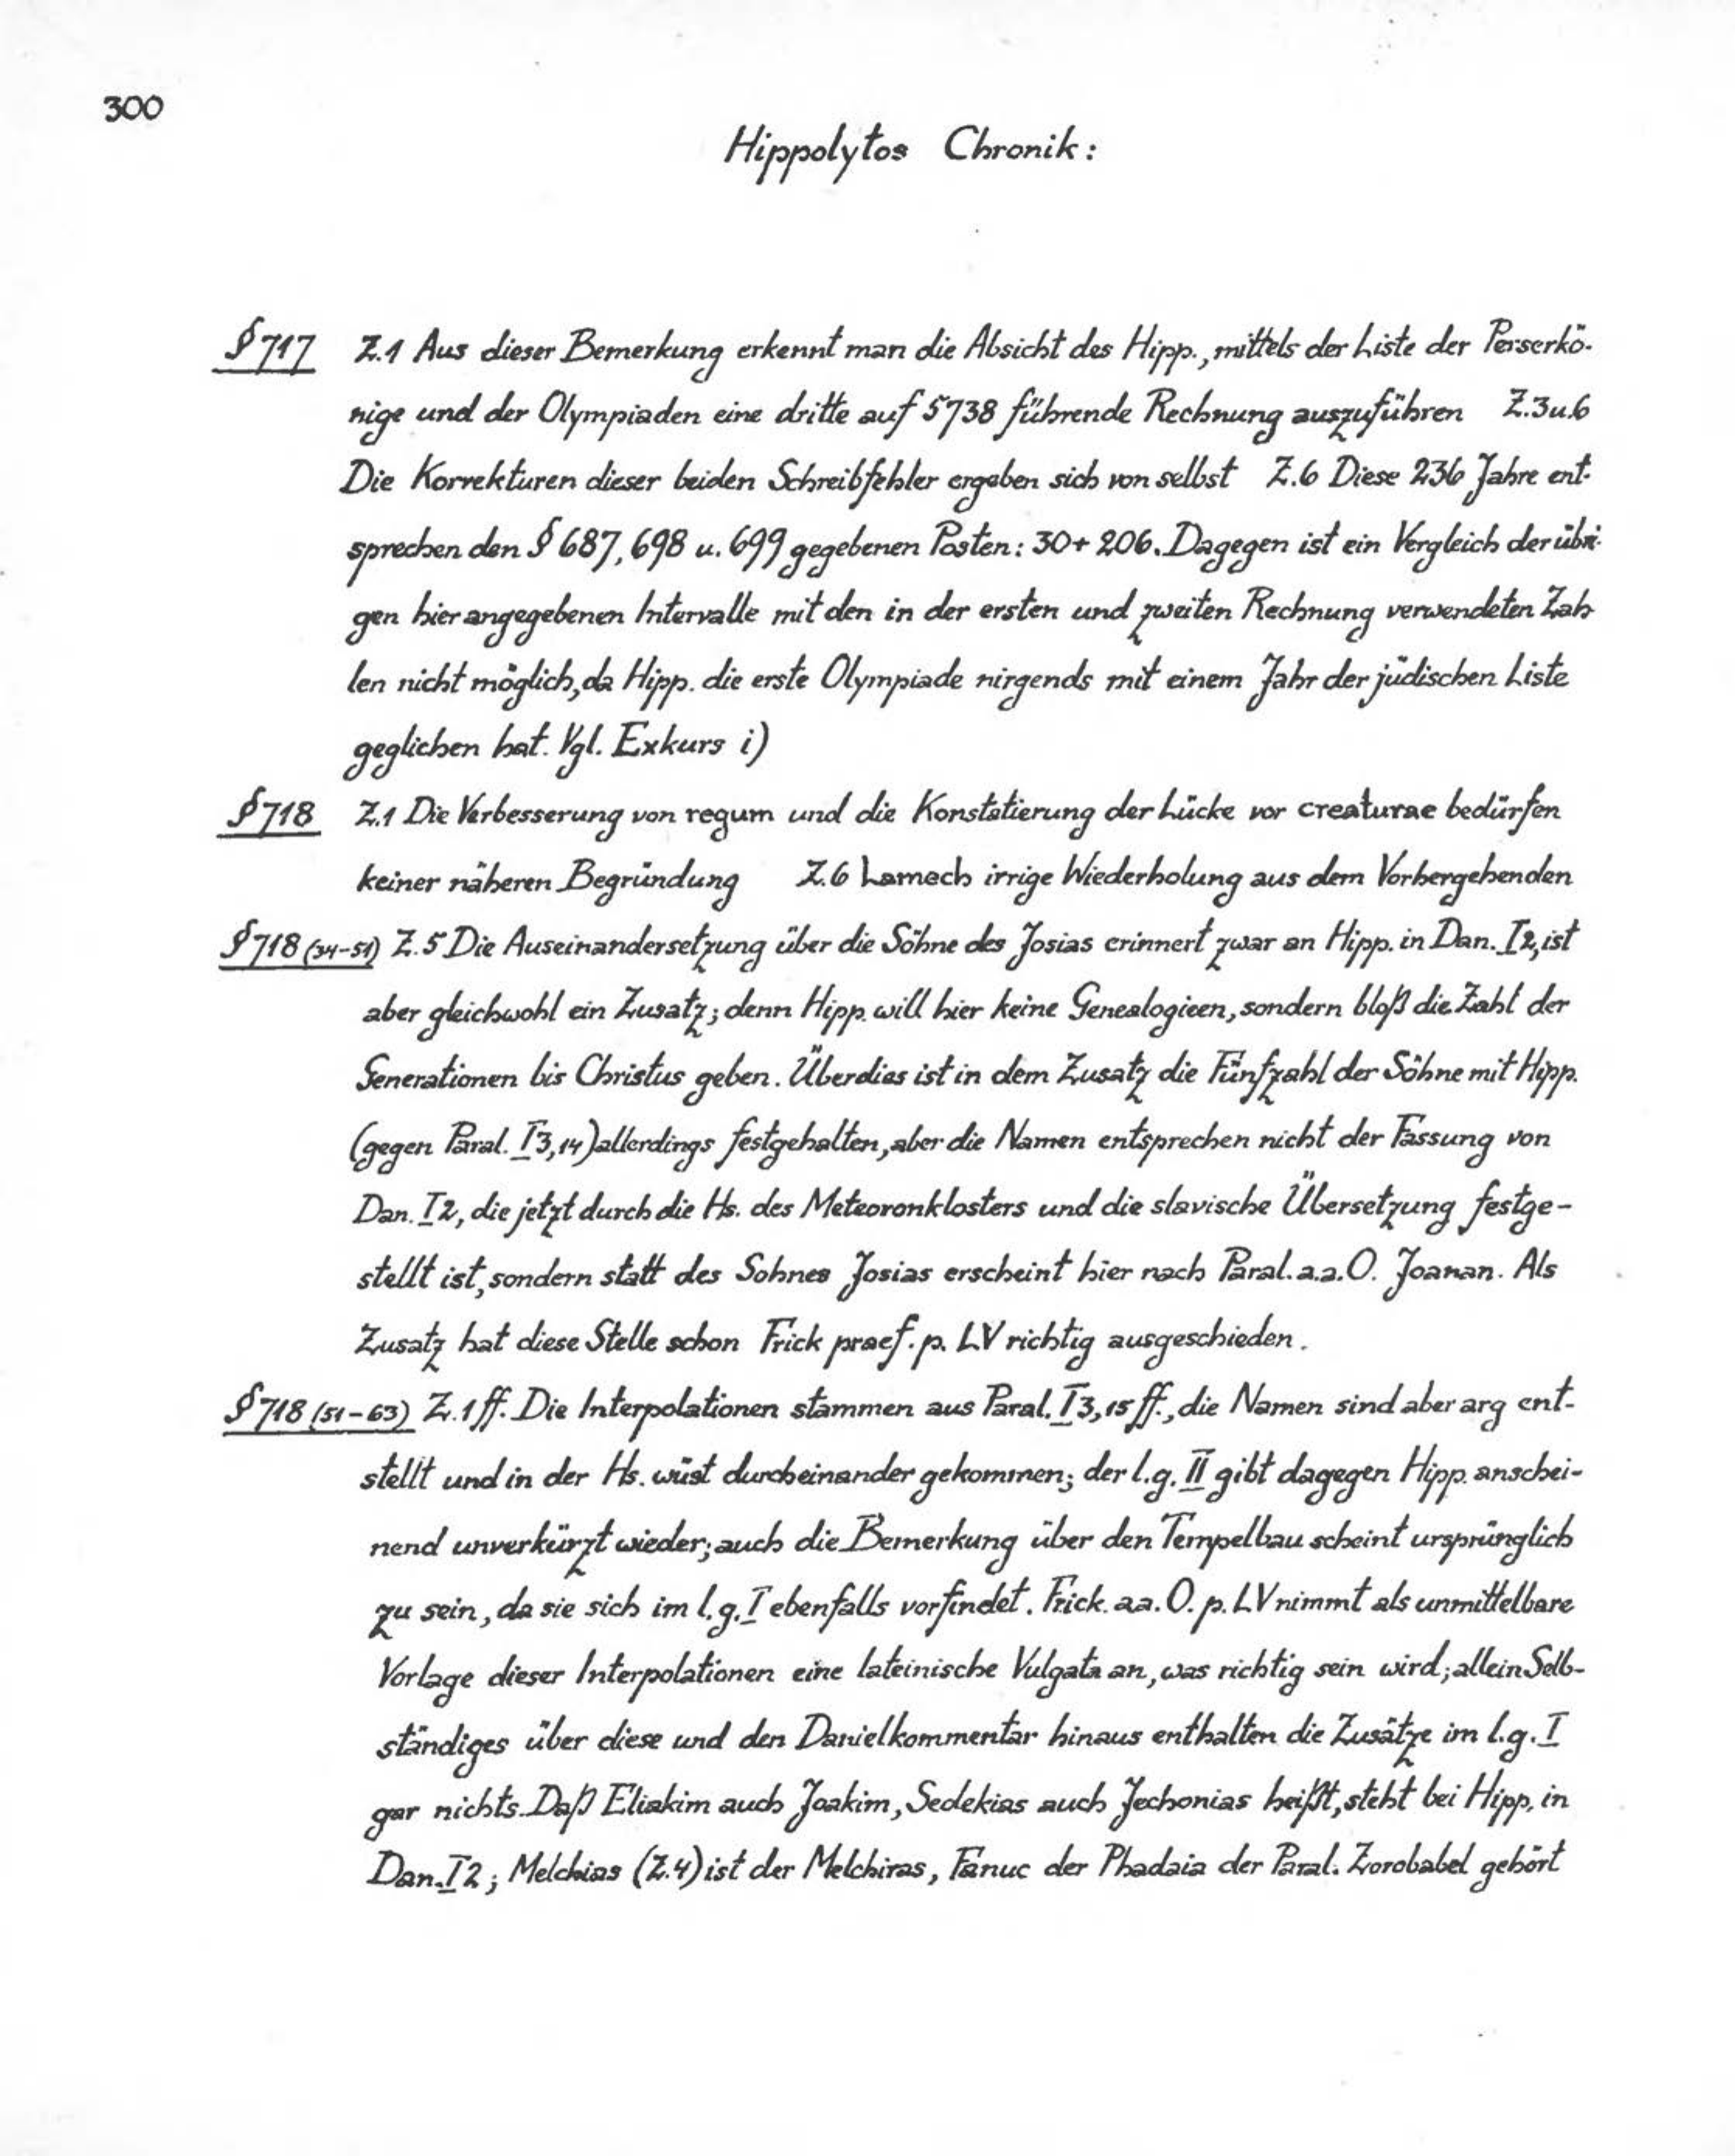 300
Hippolytos Chronik:
§ 717 Z.1 Aus dieser Bemerkung erkennt man die Absicht des Hipp., mittels der Liste der Perserkö-
nige und der Olympiaden eine dritte auf 5738 führende Rechnung auszuführen Z.3u.6
Die Korrekturen dieser beiden Schreibfehler ergeben sich von selbst Z.6 Diese 236 Jahre ent-
sprechen den § 687, 698 u. 699 gegebenen Posten: 30+ 206. Dagegen ist ein Vergleich der übri-
gen hier angegebenen Intervalle mit den in der ersten und zweiten Rechnung verwendeten Zah-
len nicht möglich, da Hipp. die erste Olympiade nirgends mit einem Jahr der jüdischen Liste
geglichen hat. Vgl. Exkurs i)
§ 718 Z.1 Die Verbesserung von regum und die Konstatierung der Lücke vor creaturae bedürfen
keiner näheren Begründung Z.6 Lamech irrige Wiederholung aus dem Vorhergehenden
§ 718 (34-51) Z.5 Die Auseinandersetzung über die Söhne des Josias erinnert zwar an Hipp. in Dan. I 2, ist
aber gleichwohl ein Zusatz; denn Hipp. will hier keine Genealogieen, sondern bloß die Zahl der
Generationen bis Christus geben. Überdies ist in dem Zusatz die Fünfzahl der Söhne mit Hipp.
(gegen Paral. I 3, 14) allerdings festgehalten, aber die Namen entsprechen nicht der Fassung von
Dan. I 2, die jetzt durch die Hs. des Meteoronklosters und die slavische Übersetzung festge-
stellt ist, sondern statt des Sohnes Josias erscheint hier nach Paral. a.a.O. Joanan. Als
Zusatz hat diese Stelle schon Frick praef. p. LV richtig ausgeschieden.
§ 718 (51-63) Z. 1 ff. Die Interpolationen stammen aus Paral. I 3, 15 ff., die Namen sind aber arg ent-
stellt und in der Hs. wüst durcheinander gekommen; der l.g. II gibt dagegen Hipp. anschei-
nend unverkürzt wieder; auch die Bemerkung über den Tempelbau scheint ursprünglich
zu sein, da sie sich im l.g. I ebenfalls vorfindet. Frick. a.a.O. p. LV nimmt als unmittelbare
Vorlage dieser Interpolationen eine lateinische Vulgata an, was richtig sein wird; allein Selb-
ständiges über diese und den Danielkommentar hinaus enthalten die Zusätze im l.g. I
gar nichts. Daß Eliakim auch Joakim, Sedekias auch Jechonias heißt, steht bei Hipp. in
Dan. I 2; Melchias (Z.4) ist der Melchiras, Fanuc der Phadaia der Paral. Zorobabel gehört